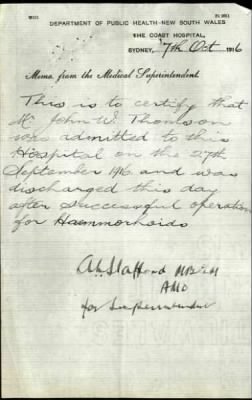 DEPARTMENT OF PUBLIC HEALTH-NEW SOUTH WALES
THE COAST HOSPITAL,
SYDNEY, 7th Oct 1916
Memo. from the Medical Superintendent.
This is to certify that
Mr John W. Thomson
was admitted to this
Hospital on the 27th
September 1916 and was
discharged this day
after successful operation
for Haemorrhoids
Stafford
AMO
for Superintendent